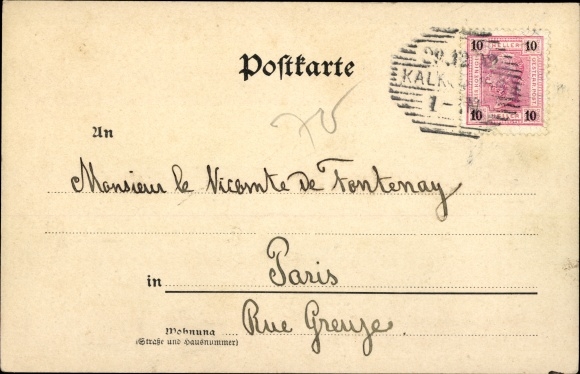 10 HELLER 10
29.12
KALK
1-
10 10
Postkarte
70
An
Monsieur le Vicomte de Fontenay
in Paris
Rue Greuze.
Wohnung
(Straße und Hausnummer)